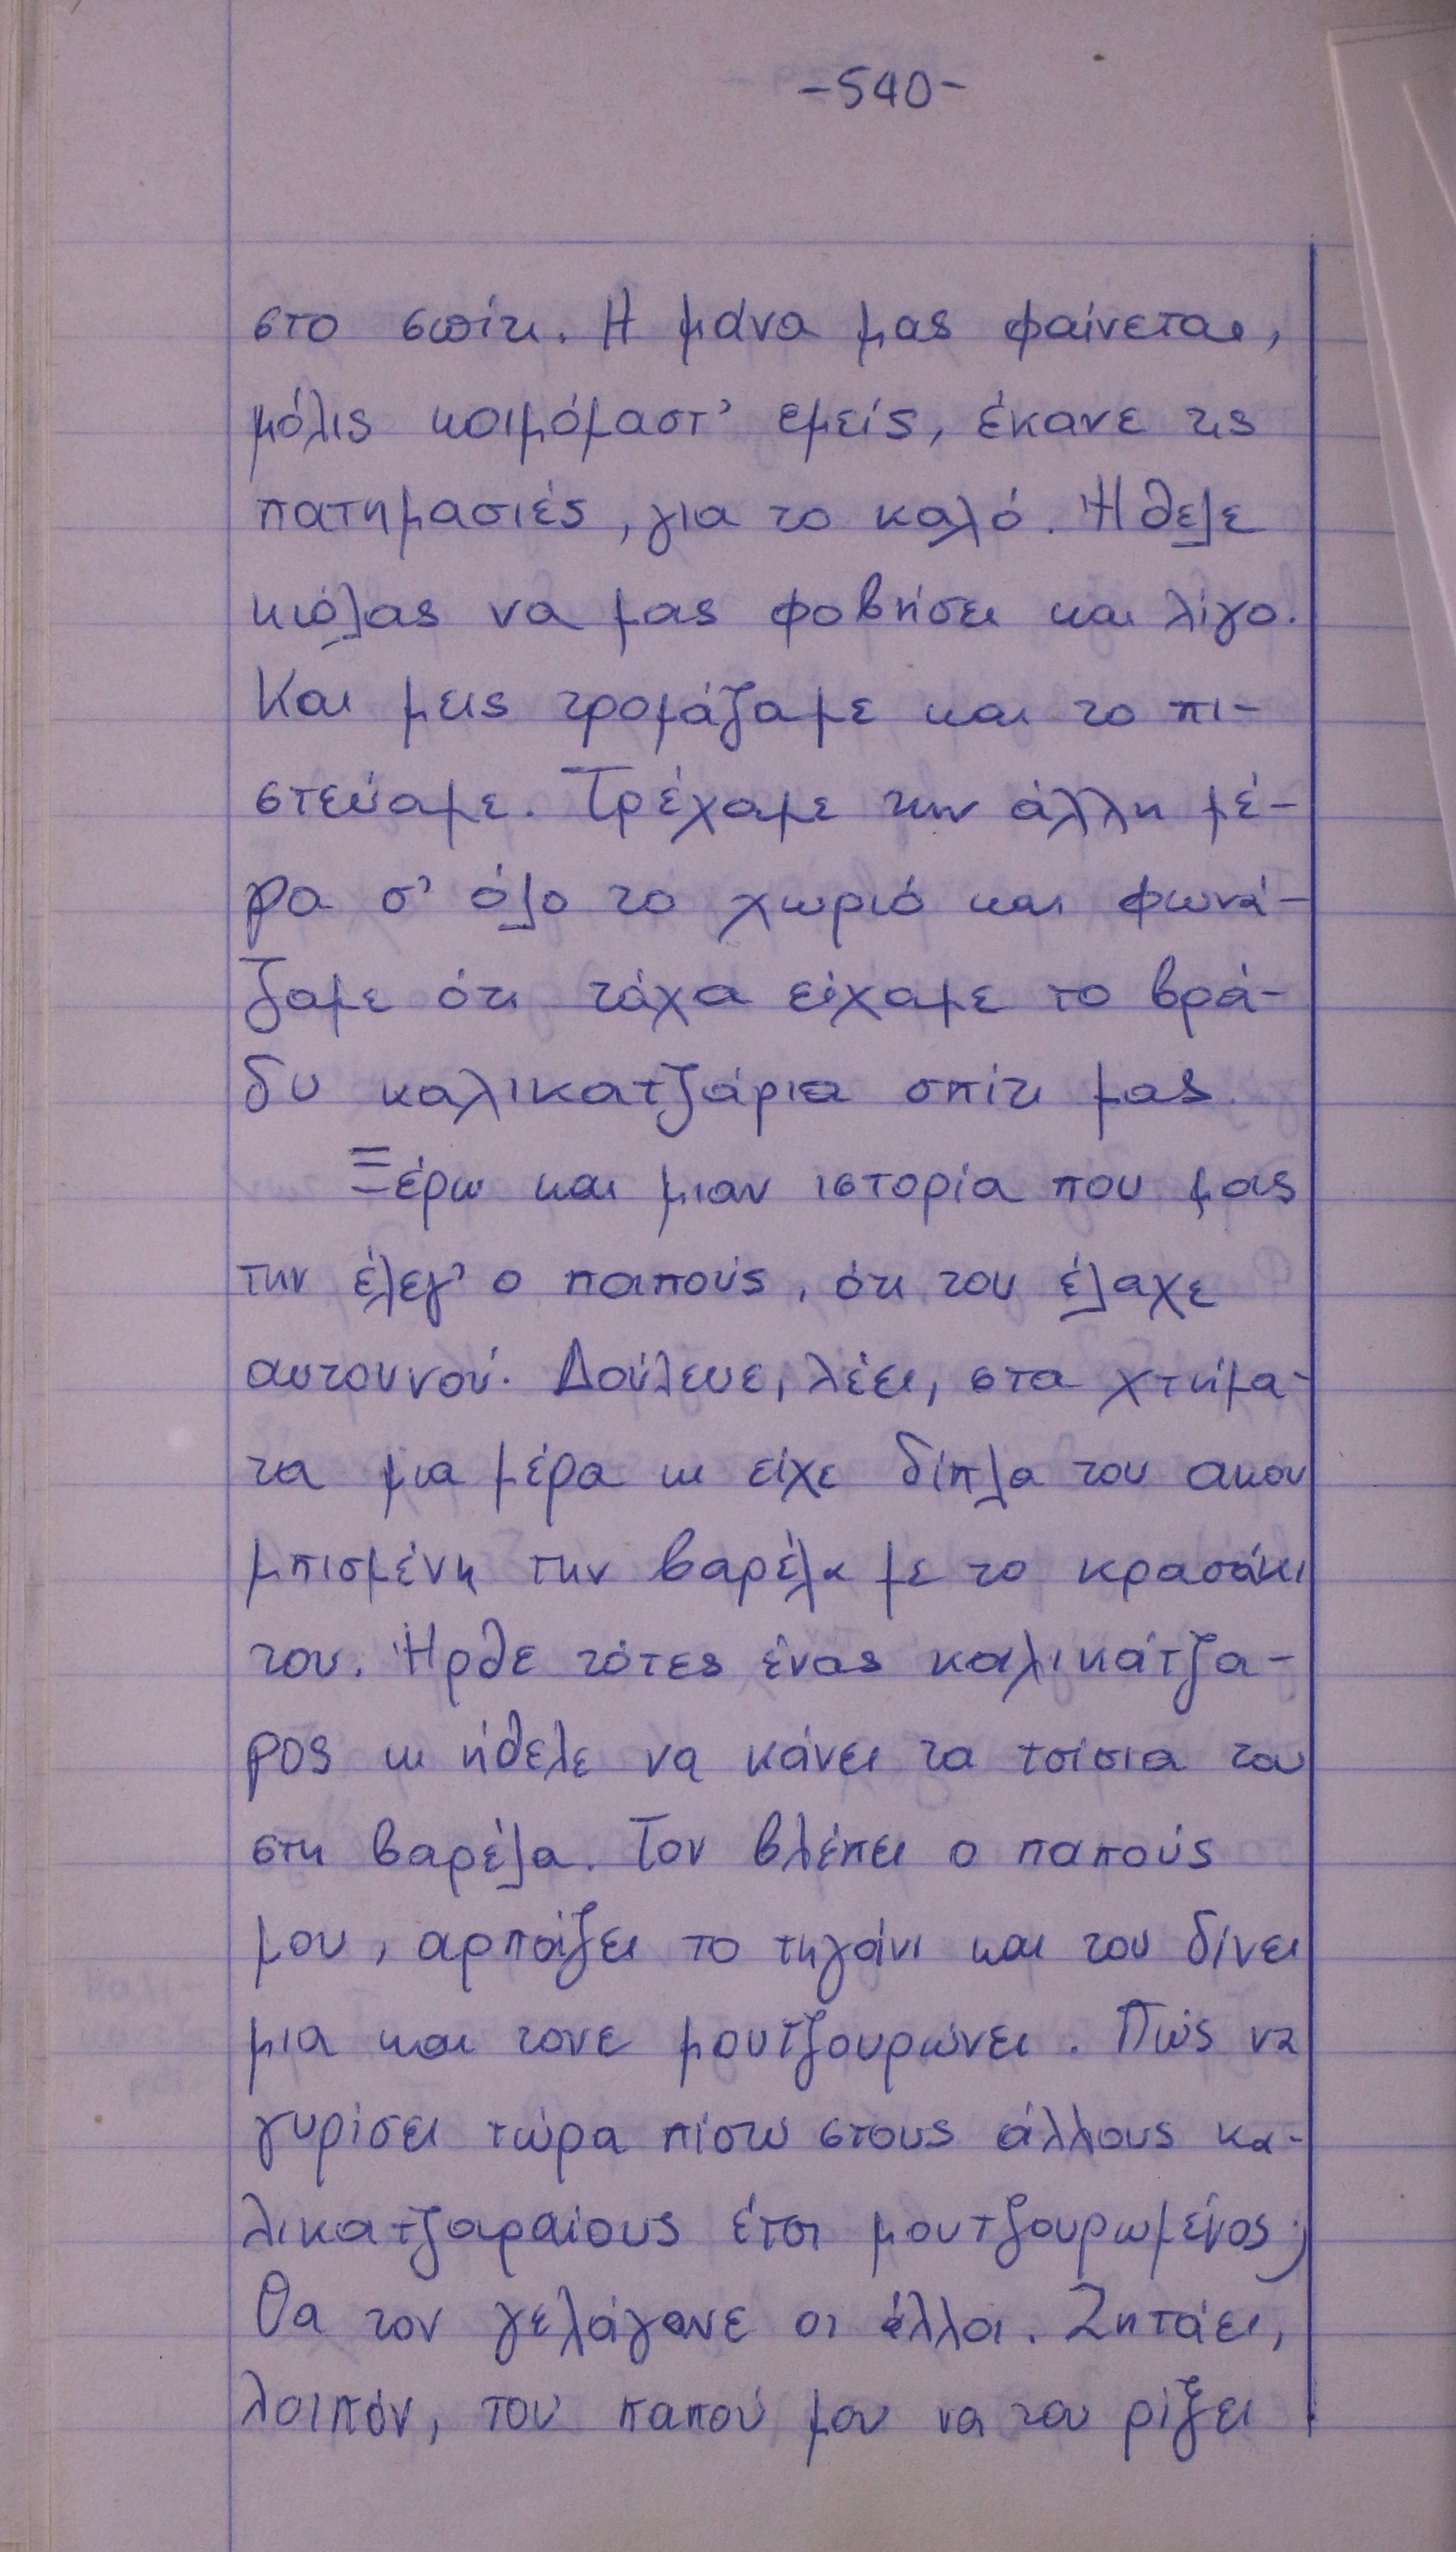 -540-
στο σπίτι. Η μάνα μας φαίνεται,
μόλις κοιμόμαστ' εμείς, έκανε τις
πατημασιές, για το καλό. Ήθελε
κιόλας να μας φοβήσει και λίγο.
Και μεις τρομάζαμε και το πι-
στεύαμε. Τρέχαμε την άλλη μέ-
ρα σ' όλο το χωριό και φωνά-
ζαμε ότι τάχα είχαμε το βρά-
δυ καλικατζάρια σπίτι μας.
Ξέρω και μιαν ιστορία που μας
την έλεγ' ο παπούς, ότι του έλαχε
αυτουνού. Δούλευε, λέει, στα χτήμα-
τα μια μέρα κι είχε δίπλα του ακου
μπισμένη την βαρέλα με το κρασάκι
του. Ήρθε τότες ένας καλικάτζα-
ρος κι ήθελε να κάνει τα τσίσια του
στη βαρέλα. Τον βλέπει ο παπούς
μου, αρπάζει το τηγάνι και του δίνει
μια και τονε μουτζουρώνει. Πώς να
γυρίσει τώρα πίσω στους άλλους κα-
λικατζαραίους έτσι μουτζουρωμένος;
Θα τον γελάγανε οι άλλοι. Ζητάει,
λοιπόν, του παπού μου να του ρίξει